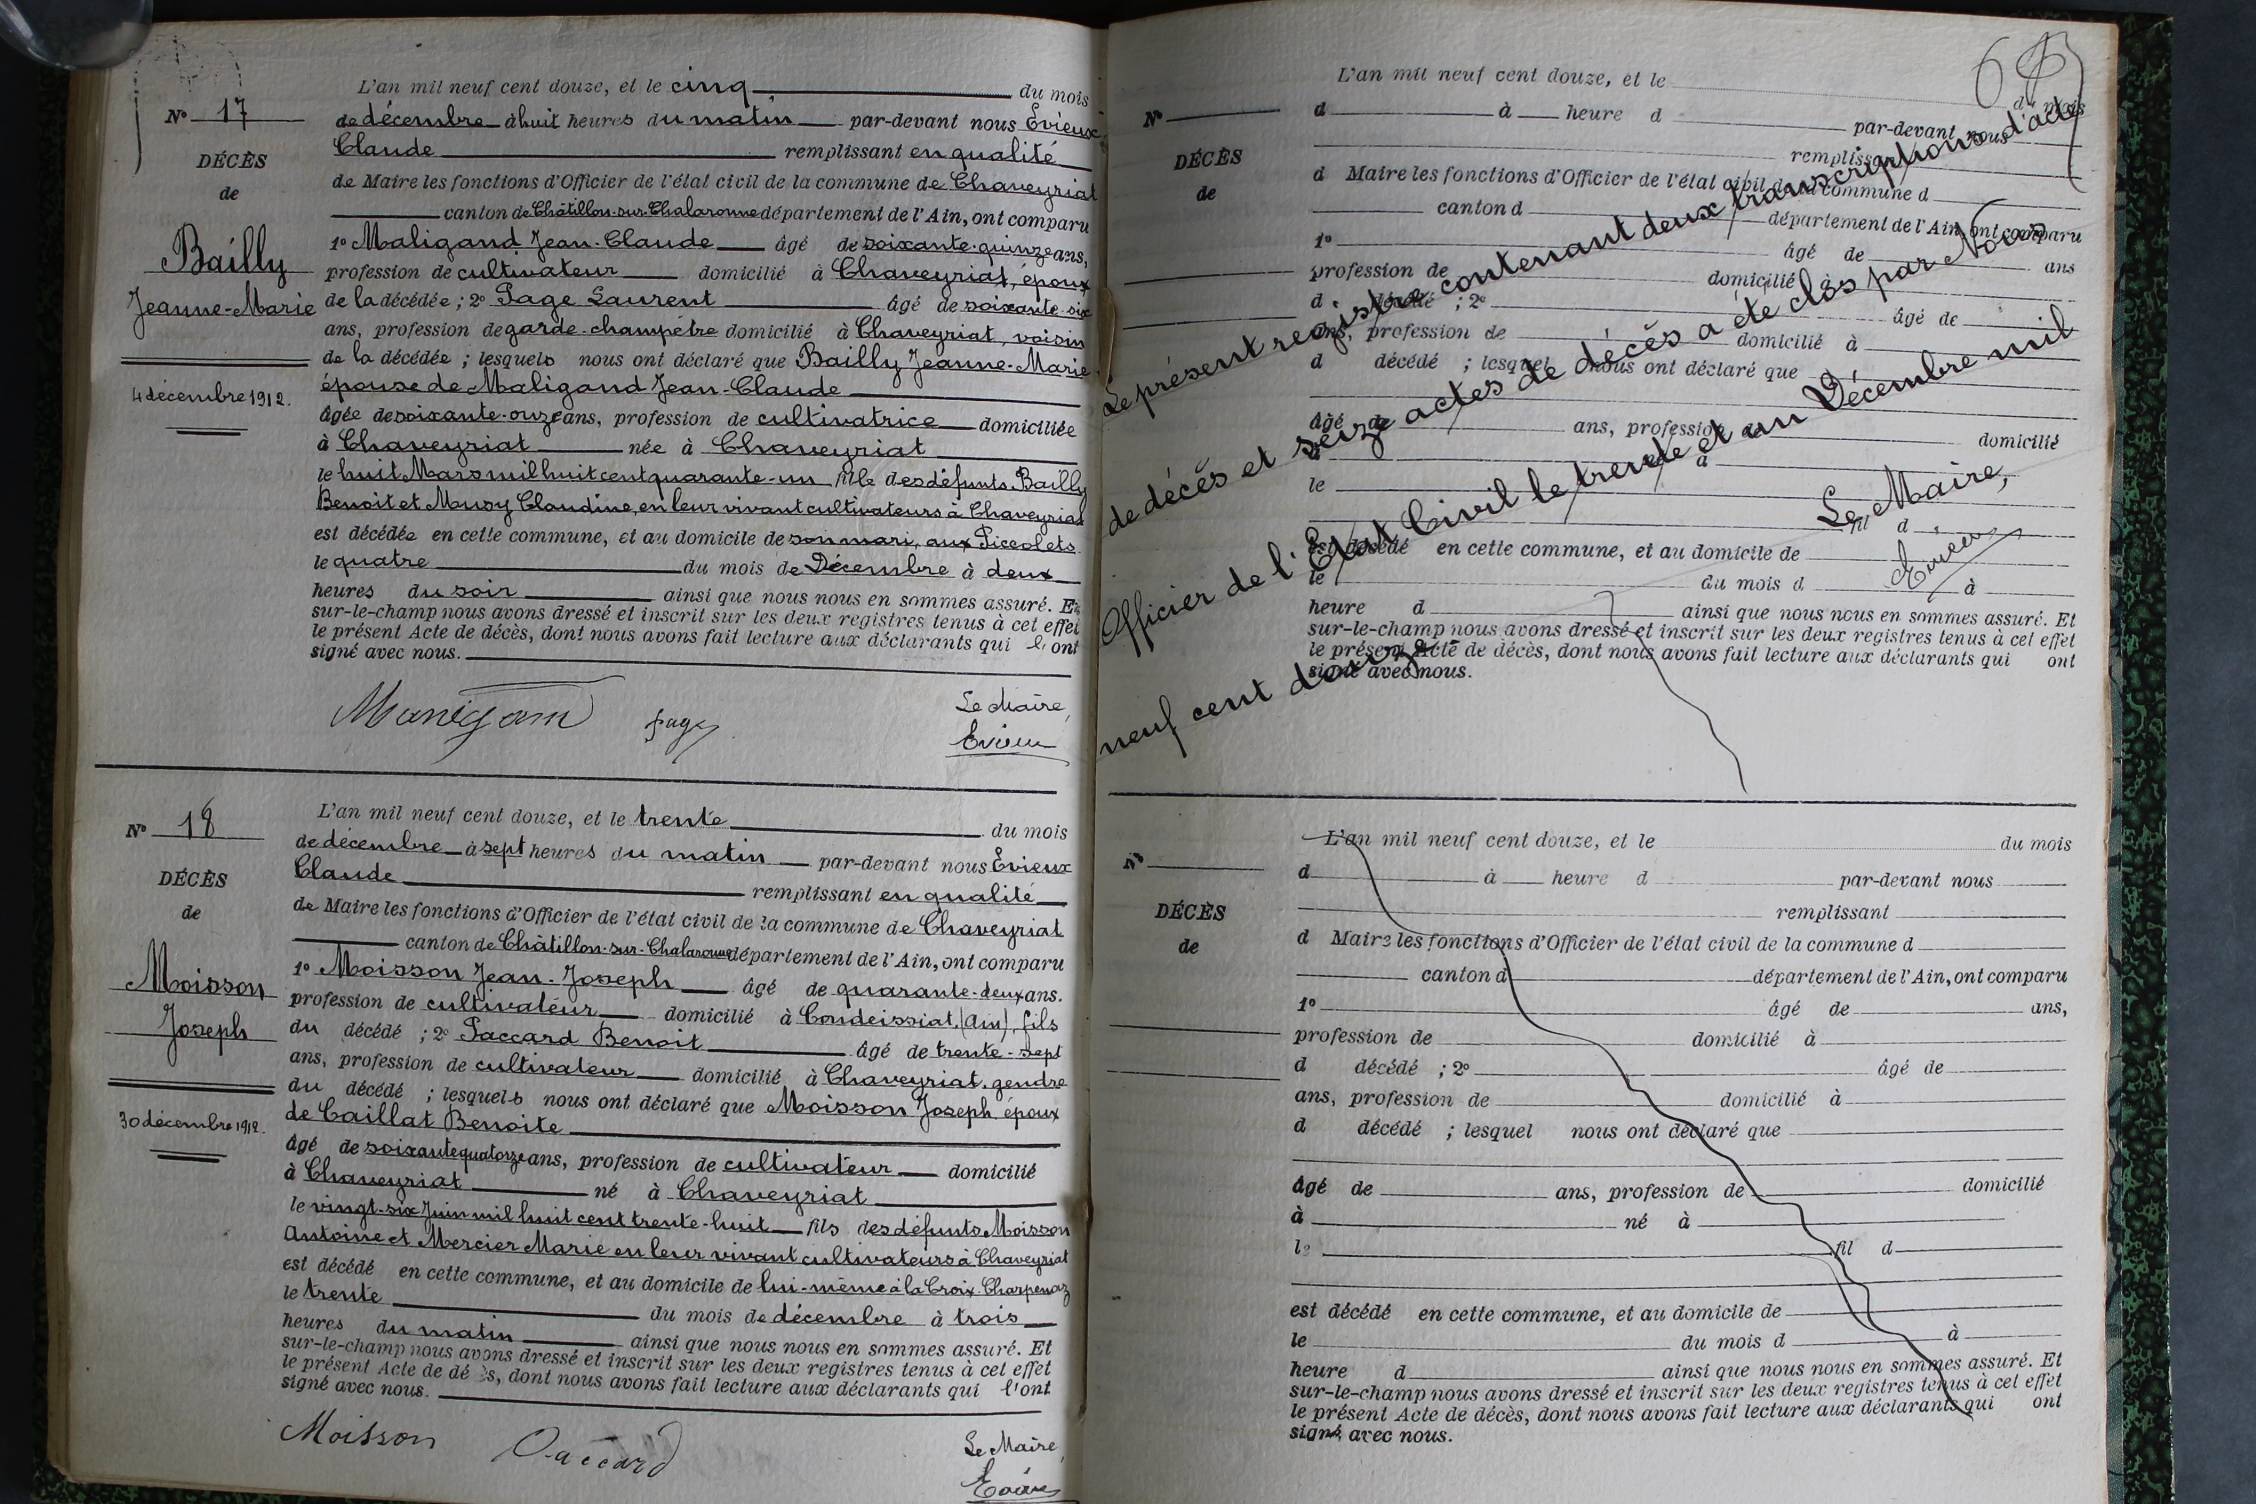 L'an mil neuf cent douze, et le cinq du mois
N° 17
de décembre à huit heures du matin par-devant nous Evieux
Claude remplissant en qualité
DÉCÈS
de Maire les fonctions d'Officier de l'état civil de la commune de Chaveyriat
de
canton de Châtillon-sur-Chalaronne département de l'Ain, ont comparu
1° Maligand Jean-Claude âgé de soixante-quinze ans,
Bailly
profession de cultivateur domicilié à Chaveyriat, époux
Jeanne-Marie
de la décédée ; 2° Page Laurent âgé de soixante-six
ans, profession de garde-champêtre domicilié à Chaveyriat, voisin
de la décédée ; lesquels nous ont déclaré que Bailly Jeanne-Marie
épouse de Maligand Jean-Claude
4 décembre 1912.
âgée de soixante-onze ans, profession de cultivatrice domiciliée
à Chaveyriat née à Chaveyriat
le huit Mars mil huit cent quarante-un fille des défunts Bailly
Benoit et Musy Claudine, en leur vivant cultivateurs à Chaveyriat
est décédée en cette commune, et au domicile de son mari, aux Piccolets
le quatre du mois de Décembre à deux
heures du soir ainsi que nous nous en sommes assuré. Et
sur-le-champ nous avons dressé et inscrit sur les deux registres tenus à cet effet
le présent Acte de décès, dont nous avons fait lecture aux déclarants qui l'ont
signé avec nous.
page
Le Maire,
Evieux
L'an mil neuf cent douze, et le trente du mois
N° 18
de décembre à sept heures du matin par-devant nous Evieux
Claude remplissant en qualité
DÉCÈS
de Maire les fonctions d'Officier de l'état civil de la commune de Chaveyriat
de
canton de Châtillon-sur-Chalaronne département de l'Ain, ont comparu
1° Moisson Jean-Joseph âgé de quarante-deux ans.
Moisson
profession de cultivateur domicilié à Condeissiat, (Ain), fils
Joseph
du décédé ; 2° Paccard Benoit âgé de trente-sept
ans, profession de cultivateur domicilié à Chaveyriat, gendre
du décédé ; lesquels nous ont déclaré que Moisson Joseph, époux
de Caillat Benoite
30 décembre 1912.
âgé de soixante quatorze ans, profession de cultivateur domicilié
à Chaveyriat né à Chaveyriat
le vingt-six Juin mil huit cent trente-huit fils des défunts Moisson
Antoine et Mercier Marie en leur vivant cultivateurs à Chaveyriat
est décédé en cette commune, et au domicile de lui-même à la Croix-Charpenaz
le trente du mois de décembre à trois
heures du matin ainsi que nous nous en sommes assuré. Et
sur-le-champ nous avons dressé et inscrit sur les deux registres tenus à cet effet
le présent Acte de dé ès, dont nous avons fait lecture aux déclarants qui l'ont
signé avec nous.
Moisson Paccard
Le Maire
Evieux
L'an mil neuf cent douze, et le
du mois
N°
d à heure d par-devant nous
remplissant
DÉCÈS
d Maire les fonctions d'Officier de l'état civil de la commune d
de
canton d département de l'Ain, ont comparu
1° âgé de ans
profession de domicilié à
d décédé ; 2° âgé de
ans, profession de domicilié à
d décédé ; lesquel nous ont déclaré que
âgé de ans, profession de domicilié
à né à
le fil d
est décédé en cette commune, et au domicile de
le du mois d à
heure d ainsi que nous nous en sommes assuré. Et
sur-le-champ nous avons dressé et inscrit sur les deux registres tenus à cet effet
le présent Acte de décès, dont nous avons fait lecture aux déclarants qui ont
signé avec nous.
Le présent registre contenant deux transcriptions d'actes
de décès et seize actes de décès a été clos par Nous
Officier de l'Etat Civil le trente et un Décembre mil
neuf cent douze
Le Maire,
Evieux
L'an mil neuf cent douze, et le du mois
N°
d à heure d par-devant nous
remplissant
DÉCÈS
d Maire les fonctions d'Officier de l'état civil de la commune d
de
canton d département de l'Ain, ont comparu
1° âgé de ans,
profession de domicilié à
d décédé ; 2° âgé de
ans, profession de domicilié à
d décédé ; lesquel nous ont déclaré que
âgé de ans, profession de domicilié
à né à
le fil d
est décédé en cette commune, et au domicile de
le du mois d à
heure d ainsi que nous nous en sommes assuré. Et
sur-le-champ nous avons dressé et inscrit sur les deux registres tenus à cet effet
le présent Acte de décès, dont nous avons fait lecture aux déclarants qui ont
signé avec nous.